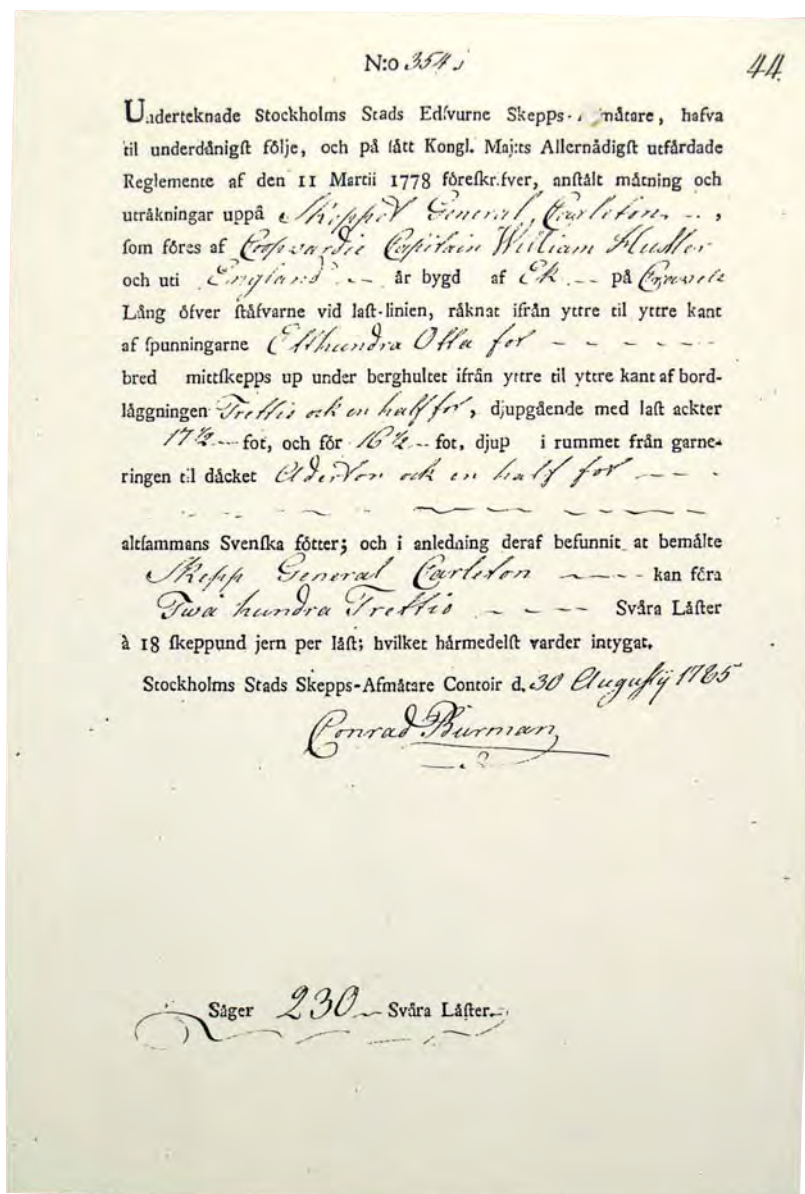 N:o 354
44.
Underteknade Stockholms Stads Edſvurne Skepps-Afmätare, hafva
til underdånigſt följe, och på ſätt Kongl. Maj:ts Allernådigſt utfärdade
Reglemente af den 11 Martii 1778 föreſkrifver, anſtält mätning och
uträkningar uppå Skeppet General Carleton - - ,
ſom föres af Coopvardie Capitain William Hustler
och uti England - - är bygd af Ek - - på Cravels
Lång öfver ſtäfvarne vid laſt-linien, räknat ifrån yttre til yttre kant
af ſpunningarne Etthundra Otta fot - - - - - -
bred mittſkepps up under berghultet ifrån yttre til yttre kant af bord-
läggningen Trettio ock en half fot, djupgående med laſt ackter
17 1/2 - fot, och för 16 1/2 - fot, djup i rummet från garne-
ringen til däcket Aderton ock en half fot - - - -
altſammans Svenſka fötter; och i anledning deraf befunnit at bemälte
Skepp General Carleton - - - - kan föra
Twa hundra Trettio - - - - Svåra Läſter
à 18 ſkeppund jern per läſt; hvilket härmedelſt varder intygat.
Stockholms Stads Skepps-Afmätare Contoir d. 30 Augustij 1785
Conrad Burman
Säger 230 - Svåra Läſter.